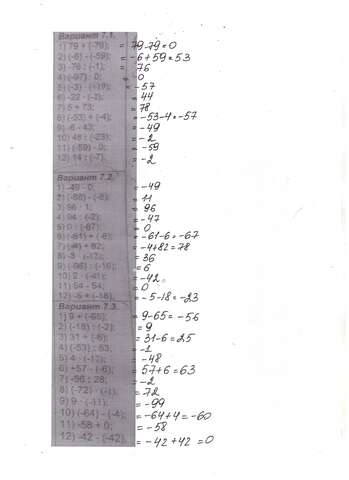 Вариант 7.1.
1) 79 + (-79); = 79-79=0
2) (-6) - (-59); = -6+59=53
3) -76 : (-1); = 76
4) (-97) · 0; = 0
5) (-3) · (+19); = -57
6) -22 · (-2); = 44
7) 5 + 73; = 78
8) (-53) + (-4); = -53-4=-57
9) -6 - 43; = -49
10) 46 : (-23); = -2
11) (-59) - 0; = -59
12) 14 : (-7); = -2
Вариант 7.2.
1) -49 - 0; = -49
2) (-88) : (-8); = 11
3) 96 : 1; = 96
4) 94 : (-2); = -47
5) 0 : (-67); = 0
6) (-61) + (-6); = -61-6=-67
7) (-4) + 82; = -4+82=78
8) -3 · (-12); = 36
9) (-96) : (-16); = 6
10) 2 · (-41); = -42
11) 54 - 54; = 0
12) -5 + (-18); = -5-18=-23
Вариант 7.3.
1) 9 + (-65); = 9-65= -56
2) (-18) : (-2); = 9
3) 31 + (-6); = 31-6=25
4) (-53) : 53; = -1
5) 4 · (-12); = -48
6) +57 - (-6); = 57+6=63
7) -56 : 28; = -2
8) (-72) · (-1); = 72
9) 9 · (-11); = -99
10) (-64) - (-4); = -64+4=-60
11) -58 + 0; = -58
12) -42 - (-42). = -42+42=0